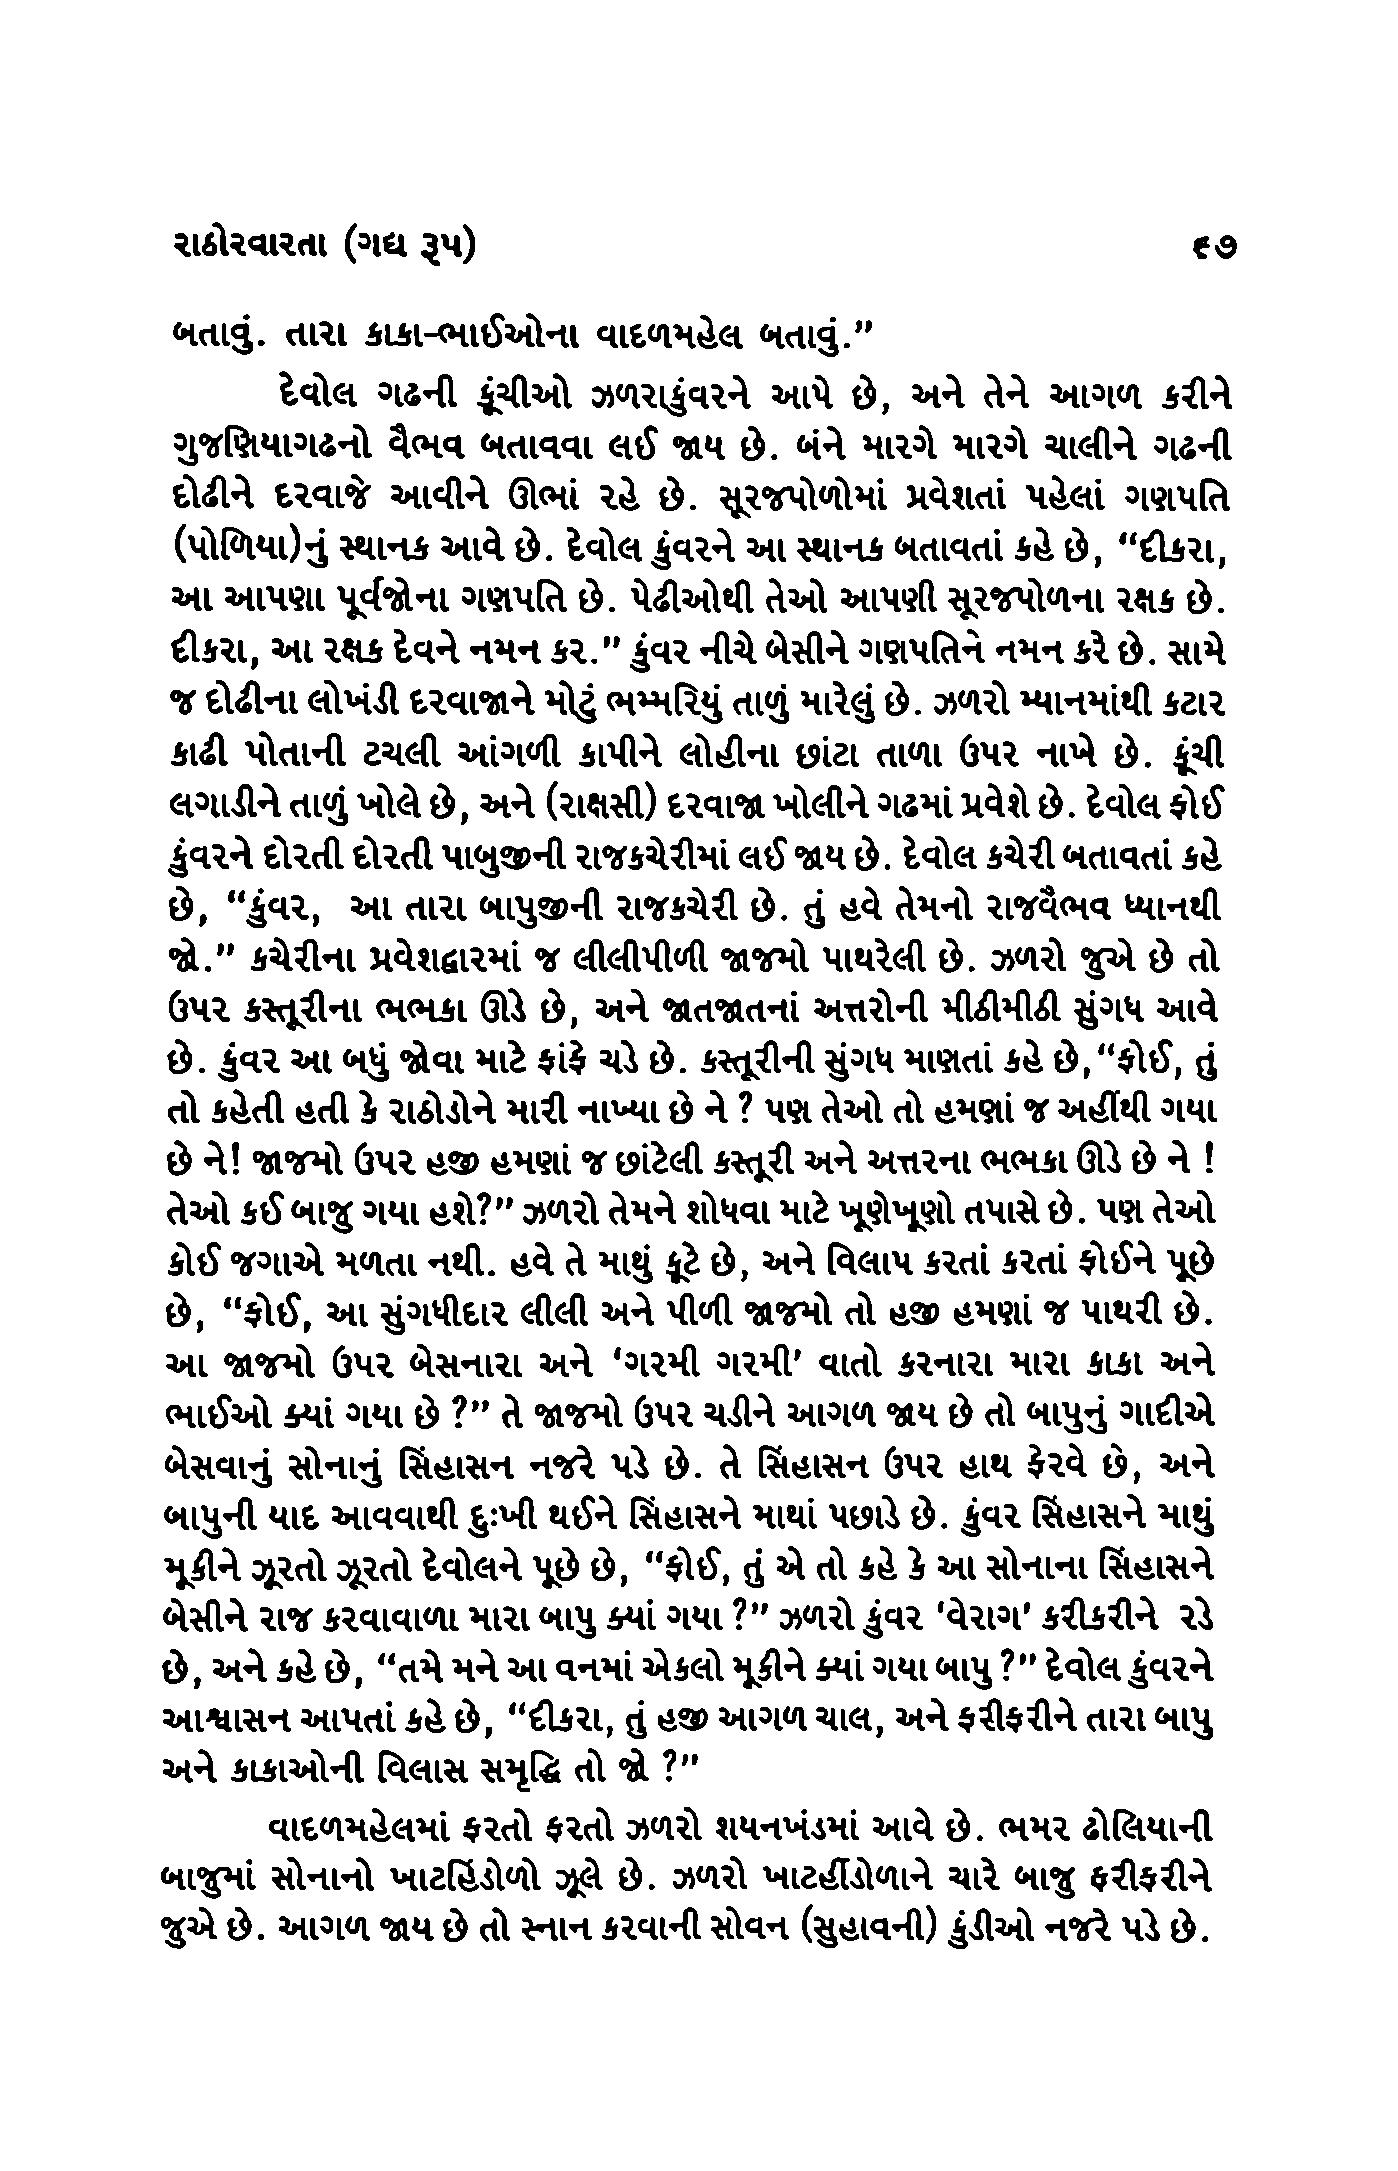 રાઠોરવારતા (ગદ્ય રૂપ) ૯૭
બતાવું. તારા કાકા-ભાઈઓના વાદળમહેલ બતાવું.”
દેવોલ ગઢની કૂંચીઓ ઝળરાકુંવરને આપે છે, અને તેને આગળ કરીને
ગુજણિયાગઢનો વૈભવ બતાવવા લઈ જાય છે. બંને મારગે મારગે ચાલીને ગઢની
દોઢીને દરવાજે આવીને ઊભાં રહે છે. સૂરજપોળોમાં પ્રવેશતાં પહેલાં ગણપતિ
(પોળિયા)નું સ્થાનક આવે છે. દેવોલ કુંવરને આ સ્થાનક બતાવતાં કહે છે, “દીકરા,
આ આપણા પૂર્વજોના ગણપતિ છે. પેઢીઓથી તેઓ આપણી સૂરજપોળના રક્ષક છે.
દીકરા, આ રક્ષક દેવને નમન કર.” કુંવર નીચે બેસીને ગણપતિને નમન કરે છે. સામે
જ દોઢીના લોખંડી દરવાજાને મોટું ભમ્મરિયું તાળું મારેલું છે. ઝળરો મ્યાનમાંથી કટાર
કાઢી પોતાની ટચલી આંગળી કાપીને લોહીના છાંટા તાળા ઉપર નાખે છે. કૂંચી
લગાડીને તાળું ખોલે છે, અને (રાક્ષસી) દરવાજા ખોલીને ગઢમાં પ્રવેશે છે. દેવોલ ફોઈ
કુંવરને દોરતી દોરતી પાબુજીની રાજકચેરીમાં લઈ જાય છે. દેવોલ કચેરી બતાવતાં કહે
છે, “કુંવર, આ તારા બાપુજીની રાજકચેરી છે. તું હવે તેમનો રાજવૈભવ ધ્યાનથી
જો.” કચેરીના પ્રવેશદ્વારમાં જ લીલીપીળી જાજમો પાથરેલી છે. ઝળરો જુએ છે તો
ઉપર કસ્તૂરીના ભભકા ઊડે છે, અને જાતજાતનાં અત્તરોની મીઠીમીઠી સુંગધ આવે
છે. કુંવર આ બધું જોવા માટે ફાંફે ચડે છે. કસ્તૂરીની સુંગધ માણતાં કહે છે,“ફોઈ, તું
તો કહેતી હતી કે રાઠોડોને મારી નાખ્યા છે ને ? પણ તેઓ તો હમણાં જ અહીંથી ગયા
છે ને! જાજમો ઉપર હજી હમણાં જ છાંટેલી કસ્તૂરી અને અત્તરના ભભકા ઊડે છે ને !
તેઓ કઈ બાજુ ગયા હશે?” ઝળરો તેમને શોધવા માટે ખૂણેખૂણો તપાસે છે. પણ તેઓ
કોઈ જગાએ મળતા નથી. હવે તે માથું કૂટે છે, અને વિલાપ કરતાં કરતાં ફોઈને પૂછે
છે, “ફોઈ, આ સુંગધીદાર લીલી અને પીળી જાજમો તો હજી હમણાં જ પાથરી છે.
આ જાજમો ઉપર બેસનારા અને ‘ગરમી ગરમી’ વાતો કરનારા મારા કાકા અને
ભાઈઓ ક્યાં ગયા છે ?” તે જાજમો ઉપર ચડીને આગળ જાય છે તો બાપુનું ગાદીએ
બેસવાનું સોનાનું સિંહાસન નજરે પડે છે. તે સિંહાસન ઉપર હાથ ફેરવે છે, અને
બાપુની યાદ આવવાથી દુઃખી થઈને સિંહાસને માથાં પછાડે છે. કુંવર સિંહાસને માથું
મૂકીને ઝૂરતો ઝૂરતો દેવોલને પૂછે છે, “ફોઈ, તું એ તો કહે કે આ સોનાના સિંહાસને
બેસીને રાજ કરવાવાળા મારા બાપુ ક્યાં ગયા ?” ઝળરો કુંવર ‘વેરાગ’ કરીકરીને રડે
છે, અને કહે છે, “તમે મને આ વનમાં એકલો મૂકીને ક્યાં ગયા બાપુ ?” દેવોલ કુંવરને
આશ્વાસન આપતાં કહે છે, “દીકરા, તું હજી આગળ ચાલ, અને ફરીફરીને તારા બાપુ
અને કાકાઓની વિલાસ સમૃદ્ધિ તો જો ?”
વાદળમહેલમાં ફરતો ફરતો ઝળરો શયનખંડમાં આવે છે. ભમર ઢોલિયાની
બાજુમાં સોનાનો ખાટહિંડોળો ઝૂલે છે. ઝળરો ખાટહીંડોળાને ચારે બાજુ ફરીફરીને
જુએ છે. આગળ જાય છે તો સ્નાન કરવાની સોવન (સુહાવની) કુંડીઓ નજરે પડે છે.